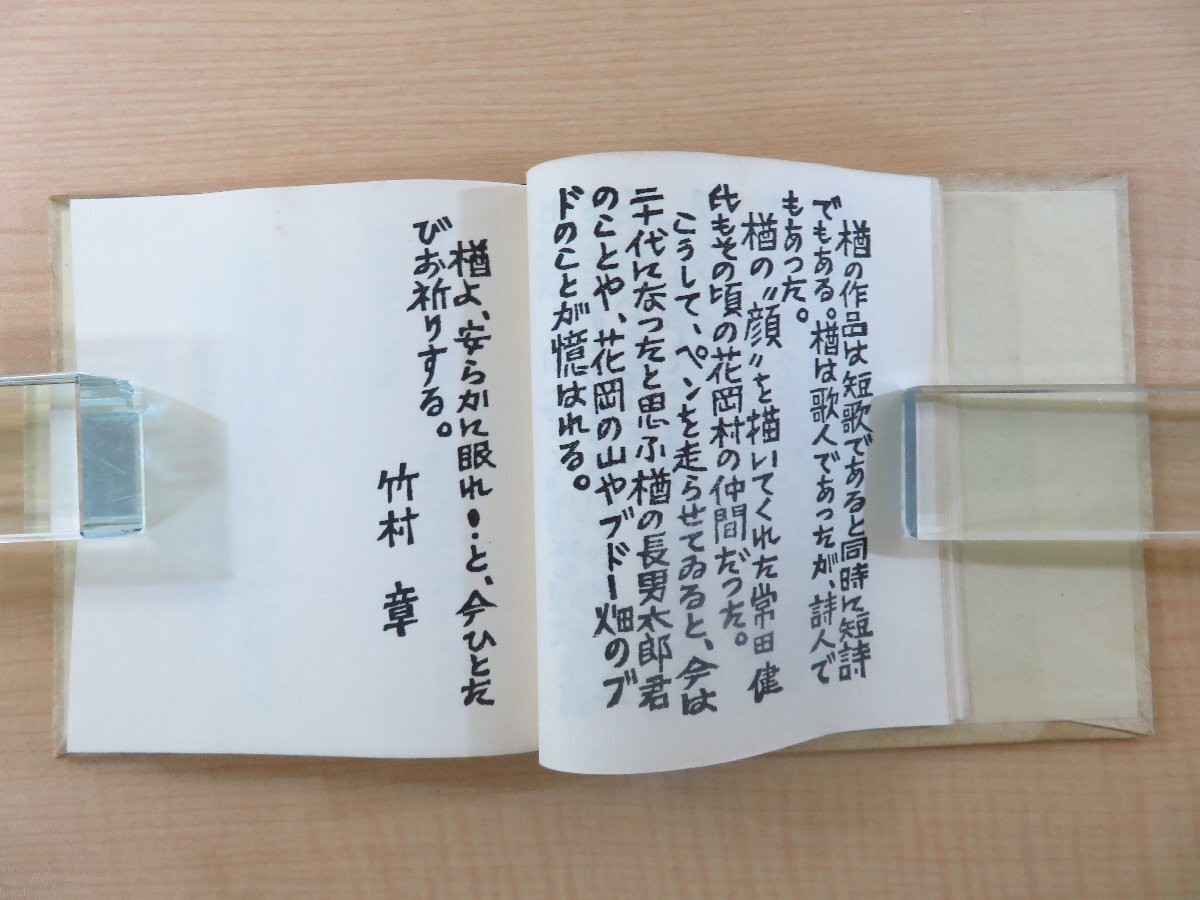 楢の作品は短歌であると同時に短詩
でもある。楢は歌人であったが、詩人で
もあった。
楢の〝顔〟を描いてくれた常田健
氏もその頃の花岡村の仲間だった。
こうして、ペンを走らせてゐると、今は
二十代になったと思ふ楢の長男太郎君
のことや、花岡の山やブドー畑のブ
ドのことが憶はれる。
楢よ、安らかに眠れ!と、今ひとた
びお祈りする。
竹村 章